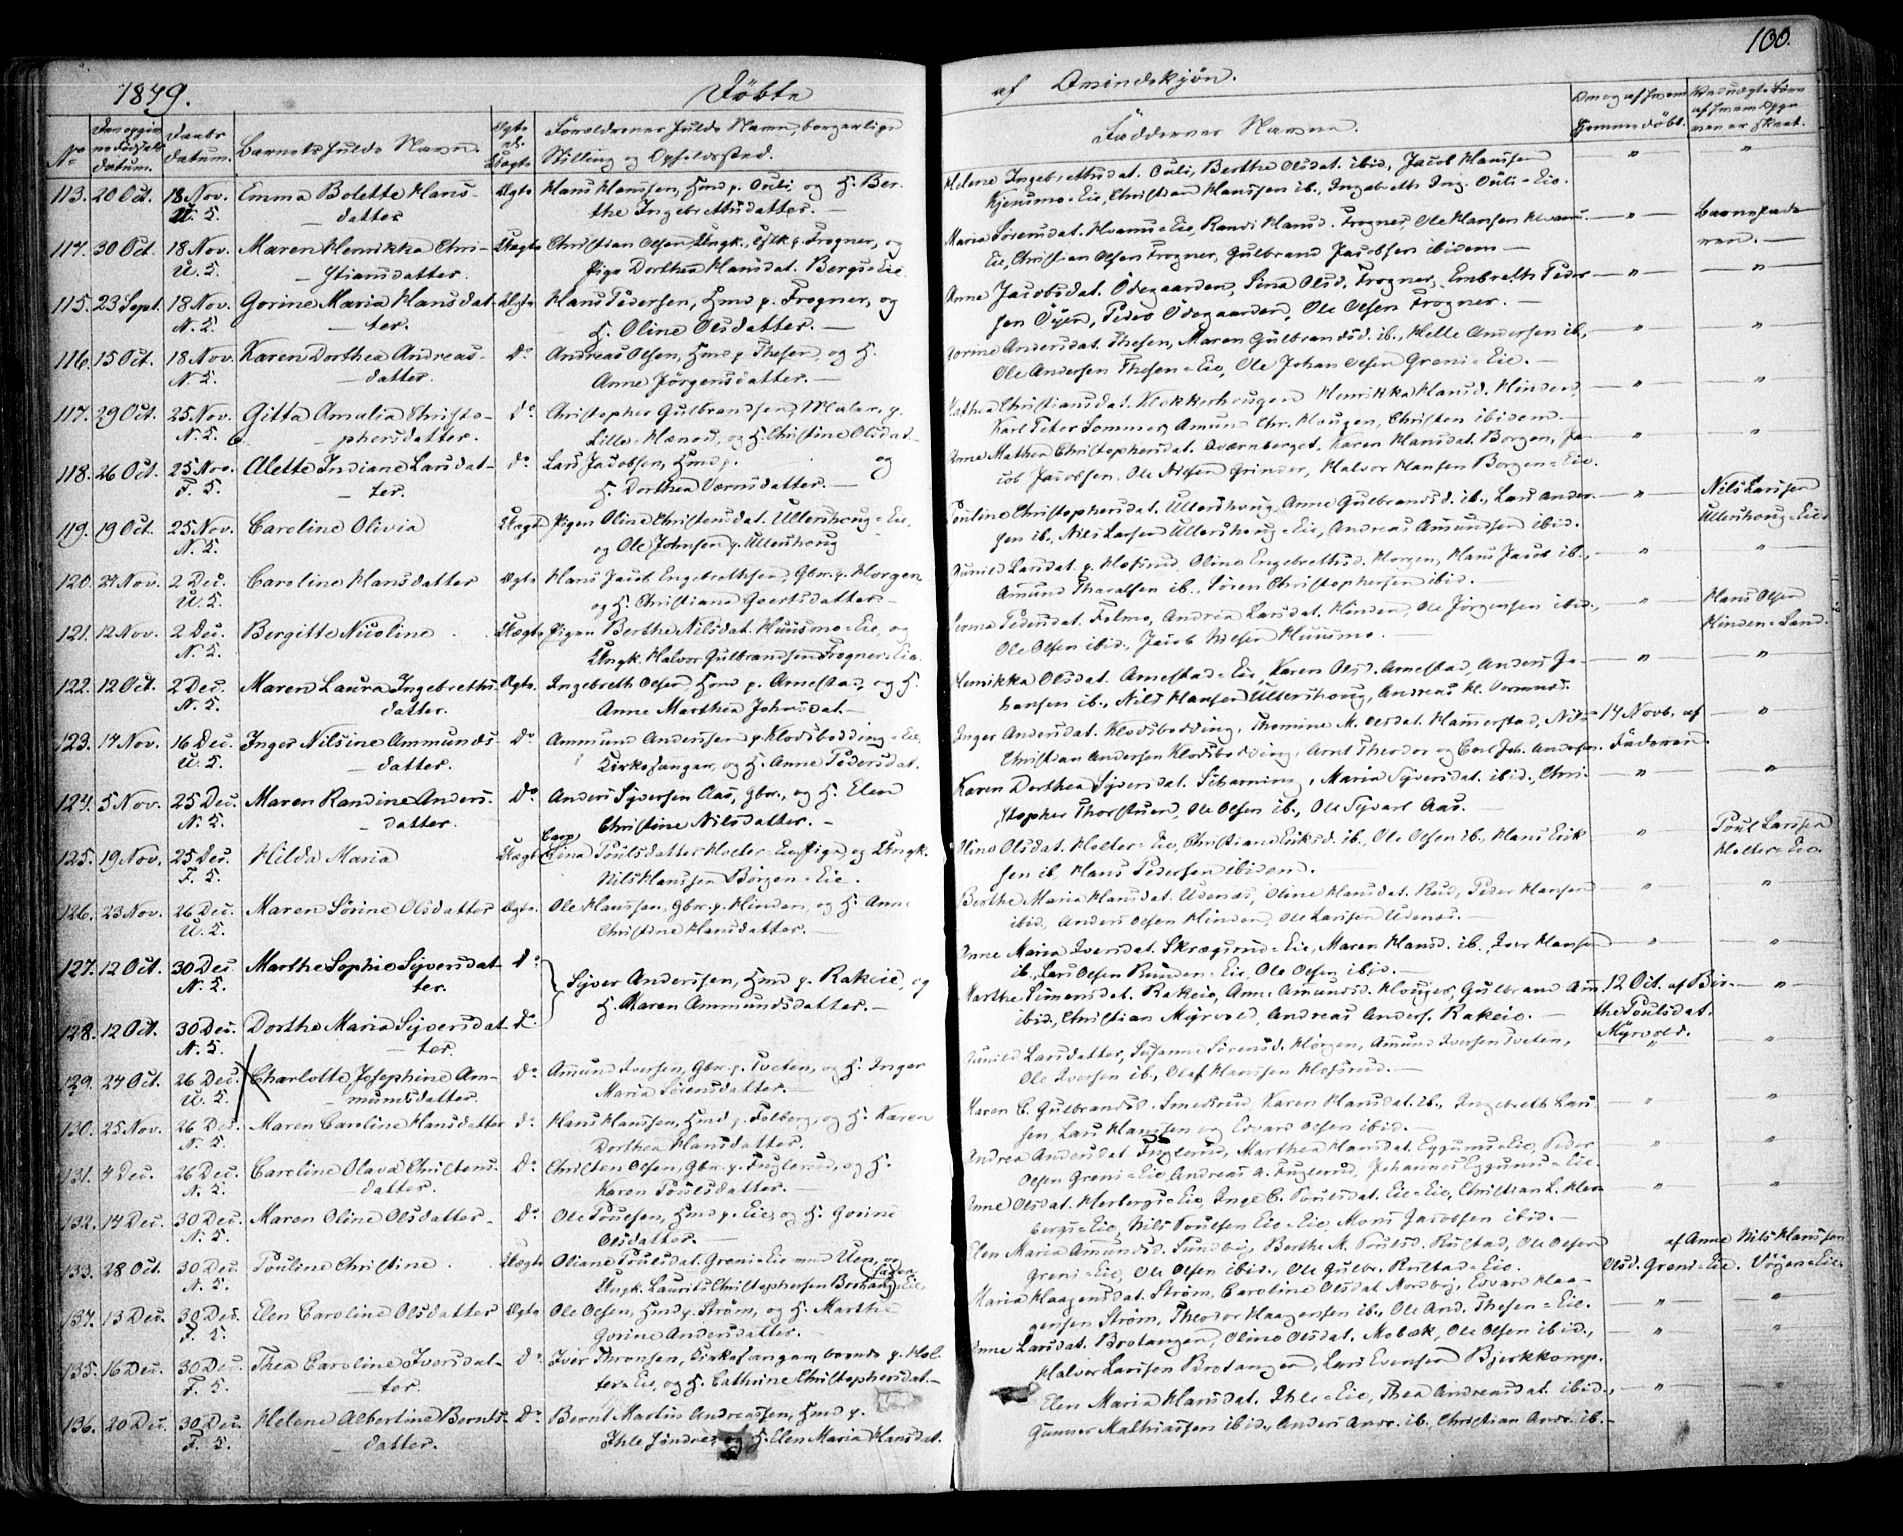 1849.
Döbte
af Qvindekjön.
100.
No
datum.
Daabs
datum.
Barnets fulde Navn.
Ægte
Uægte
Forældrenes fulde Navn, borgerlige
Stilling og Opholdssted.
Faddernes Navne.
hjemmedöbt.
113. 20 Oct. 18 Nov. Emma Bolette Hans- Ægte Hans Hanssen, Hmd p. Ouli, og H. Ber-
U. S. datter the Ingebretsdatter. —
Helene Ingebretsdat. Ouli, Berthe Olsdat. ibid, Jacob Hanssen
Kjensmo-Eie, Christian Hanssen ib., Ingebreth Ing. Ouli-Eie.
114. 30 Oct. 18 Nov. Maren Henrikka Chri- Uægte Christian Olsen Ungk. p. Frogner, og
U. S. stiansdatter. Pige Dorthea Hansdat. Bergs-Eie
Eie, Christian Olsen Frogner, Gulbrand Jacobsen ibidem —
115. 23 Sept. 18 Nov. Gorine Maria Hansdat- Ægte Hans Pedersen, Hmd p. Frogner, og
N. S. ter. H. Oline Olsdatter. —
Anne Jacobsdat. Ödegaarden, Lina Olsd. Frogner, Embreth Peder-
sen Öyen, Peder Ödegaarden, Ole Olsen Frogner. —
116. 15 Oct. 18 Nov. Karen Dorthea Andreas- Do Andreas Olsen, Hmd p. Thesen, og H.
N. S. datter. Anne Jörgensdatter. —
Gorine Andersdat. Thesen, Maren Gulbrandsd. ib., Helle Andersen ib,
Ole Andersen Thesen-Eie, Ole Johan Olsen Greni-Eie. —
117. 29 Oct. 25 Nov. Gitta Amalia Christo- do Christopher Gulbrandsen, Maler, p.
N. S. phersdatter. Lille-Hænes, og H. Christine Olsdat.
Mathea Christiansdat. Klokkerhougen Henrikka Hansd. Hinden,
Karl Peter Sommer, Amund Chr. Hougen, Christen ibidem. —
118. 26 Oct. 25 Nov. Olette Indiane Larsdat- do Lars Jacobsen, Hmd p. og
F. S. ter. H. Dorthea Værnsdatter. —
Anne Mathea Christophersdat. Qværnberget, Karen Hansdat. Borgen, Ja-
cob Jacobsen, Ole Nilsen Grinder, Halvor Hansen Borgen-Eie.
119. 19 Oct. 25 Nov. Caroline Olivia Uægte Pigen Oline Christensdat. Ullershoug-Eie,
N. S. og Ole Johnsen p. Ullershoug
Pauline Christophersdat. Ullershoug, Anne Gulbrandsd. ib., Lars Ander-
sen ib., Nils Larsen Ullershoug-Eie, Andreas Amundsen ibid.
Nils Larsen
Ullershoug-Eie
120. 24 Nov. 2 Dec. Caroline Hansdatter Ægte Hans Jacob Engebrethsen, Gbr. p. Horgen
U. S. og H. Christiane Goertsdatter —
Gunild Larsdat. p. Hofsrud, Oline Engebrethsd. Horgen, Hans Jacob ib.,
Amund Tharalsen ib., Sören Christophersen ibid.
121. 12 Nov. 2 Dec. Bergitte Nicoline Uægte Pigen Berthe Nilsdat. Huusmo-Eie, og
N. S. Ungk. Halvor Gulbrandsen Frogner-Eie.
Pedersdat. Folmo, Andrea Larsdat. Hinden, Ole Jörgensen ibid,
Ole Olsen ibid, Jacob Nilsen Huusmo. —
Hans Olsen
Hinden-Sand.
122. 12 Oct. 2 Dec. Maren Laura Ingebreths- Ægte. Ingebreth Olsen Hmd p. Arnestad, og H.
N. S. datter. Anne Marthea Johnsdat. —
Henrikka Olsdat. Arnestad-Eie, Karen Olsd. Arnestad, Anders Jo-
hansen ib., Nils Hansen Ullershoug, Andreas H.
123. 14 Nov. 16 Dec. Inger Nilsine Ammunds- Do Ammund Anderssen p. Klodsbødding-Eie,
U. S. datter. Kirkesanger, og H. Anne Pedersdat.
Inger Andersdat. Klodsbødding, Thomine M. Olsdat. Hammerstad, Nils
Christian Andersen Klodsbødding, Arnt Theodor og Carl Joh. Andersen.
14 Novb. af
Faderen.
124. 5 Nov. 25 Dec. Maren Randine Anders- Do Anders Syversen Aas, gbr., og H. Elen
N. S. datter. Christine Nilsdatter. —
Karen Dorthea Syversdat. , Maria Syversdat. ibid., Chri-
stopher Thorstuen, Ole Olsen ib., Ole Syvers. Aas. —
125. 19 Nov. 25 Dec. Hilda Maria Uægte Lina Poulsdatter Holter-Eie, Pige, og Ungk.
F. S. Nils Hanssen Börgen-Eie.
Oline Olsdat. Holter-Eie, Christiane Eriksd. ib., Ole Olsen ib. Hans Erik-
sen ib. Hans Pedersen ibidem.
Poul Larssen
Holter-Eie.
126. 23 Nov. 26 Dec. Maren Sörine Olsdatter Ægte. Ole Hanssen, Gbr. p. Hinden, og H. Anne
U. S. Christine Hansdatter. —
Berthe Maria Hansdat. Udenæs, Oline Hansdat. Rud, Peder Hansen
ibid, Anders Olsen Hinden, Ole Larssen Udenæs. —
127. 12 Oct. 30 Dec. Marthe Sophie Syversdat- do
N. S. ter.
Syver Anderssen, Hmd p. Rakeie, og
H. Maren Ammundsdatter. —
Anne Maria Iversdat. Skrægsrud-Eie, Maren Hansd. ib., Iver Hansen
ib., Lars Olsen Runden-Eie, Ole Olsen ibid. —
128. 12 Oct. 30 Dec. Dorthe Maria Syversdat- do
N. S. ter.
Marthe Simensdat. Rakeie, Anne Amundsd. Houger, Gulbrand Am.
ibid., Christian Myrvold, Andreas Anders. Rakeie. —
12 Oct. af Bir-
the Poulsdat.
Myrvold.
129. 24 Oct. 26 Dec. Charlotte Josephine Am- do Amund Iversen, Gbr. p. Tveten, og H. Inger
U. S. mundsdatter. Maria Sörensdatter. —
Gunild Larsdatter, Susanne Sörensd. Horgen, Amund Iversen Tveten,
Ole Iversen ib., Olaf Hanssen Hofsrud.
130. 25 Nov. 26 Dec. Maren Caroline Hansdatter do Hans Hanssen, Hmd p. Folberg, og H. Karen
N. S. Dorthea Hansdatter.
Karen C. Gulbrandsd. Smedsrud, Karen Hansdat. ib., Ingebreth Lars-
sen, Lars Hanssen og Edvard Olsen ibid. —
131. 4 Dec. 26 Dec. Caroline Olava Christens- Do Christen Olsen, Gbr. p. Fuglerud, og H.
N. S. datter. Karen Poulsdatter. —
Andrea Andersdat. Fuglerud, Marthea Hansdat. Eggums-Eie, Peder
Olsen Greni-Eie, Andreas A. Fuglerud, Johannes Eggums-Eie.
132. 14 Dec. 30 Dec. Maren Oline Olsdatter - Do Ole Poulsen, Hmd p. Eie, og H. Gorine
N. S. Olsdatter. —
Anne Olsdat. Herbergs-Eie, Inge C. Poulsdat. Eie-Eie, Christian L. Her-
bergs-Eie, Nils Poulsen Eie-Eie, Mons Jacobsen ibid. —
133. 28 Oct. 30 Dec. Pouline Christine Uægte Oliane Poulsdat. Greni-Eie med Uen, og
N. S. Ungk. Laurits Christophersen Eie
Elen Maria Amundsd. Sundby, Berthe M. Poulsd. Rustad, Ole Olsen
Greni-Eie, Ole Olsen ibid., Ole Gulbr. Rustad-Eie.
af Anne
Olsd. Greni-Eie.
Nils Hanssen
Vögen-Eie
134. 13 Dec. 30 Dec. Elen Caroline Olsdatter Ægte Ole Olsen, Hmd p. Ström, og H. Marthe
F. S. Gorine Andersdatter. —
Maria Haagensdat. Ström, Caroline Olsdat. Nordby, Edvard Haa-
gensen Ström, Theodor Haagensen ib., Ole And. Thesen-Eie.
135. 16 Dec. 30 Dec. Thea Caroline Iversdat- Do Iver Thronsen, Kirkesanger, boende p. Hol-
F. S. ter. ter-Eie, og H. Cathrine Christophersdat. —
Anne Larsdat. Brotangen, Oline Olsdat. Mobæk, Ole Olsen ibid.,
Halvor Larssen Brotangen, Lars Evensen Bjerkkomp.
136. 20 Dec. 30 Dec. Helene Albertine Bernts- Do Bernt Martin Andreassen, Hmd p.
F. S. datter. Ihle Söndre, og H. Elen Maria Hansdat.
Elen Maria Hansdat. Ihle-Eie, Thea Andreasdat. ibid.,
Gunner Mathiassen ibid., Anders Andr. ib. Christian Andr. ib. —